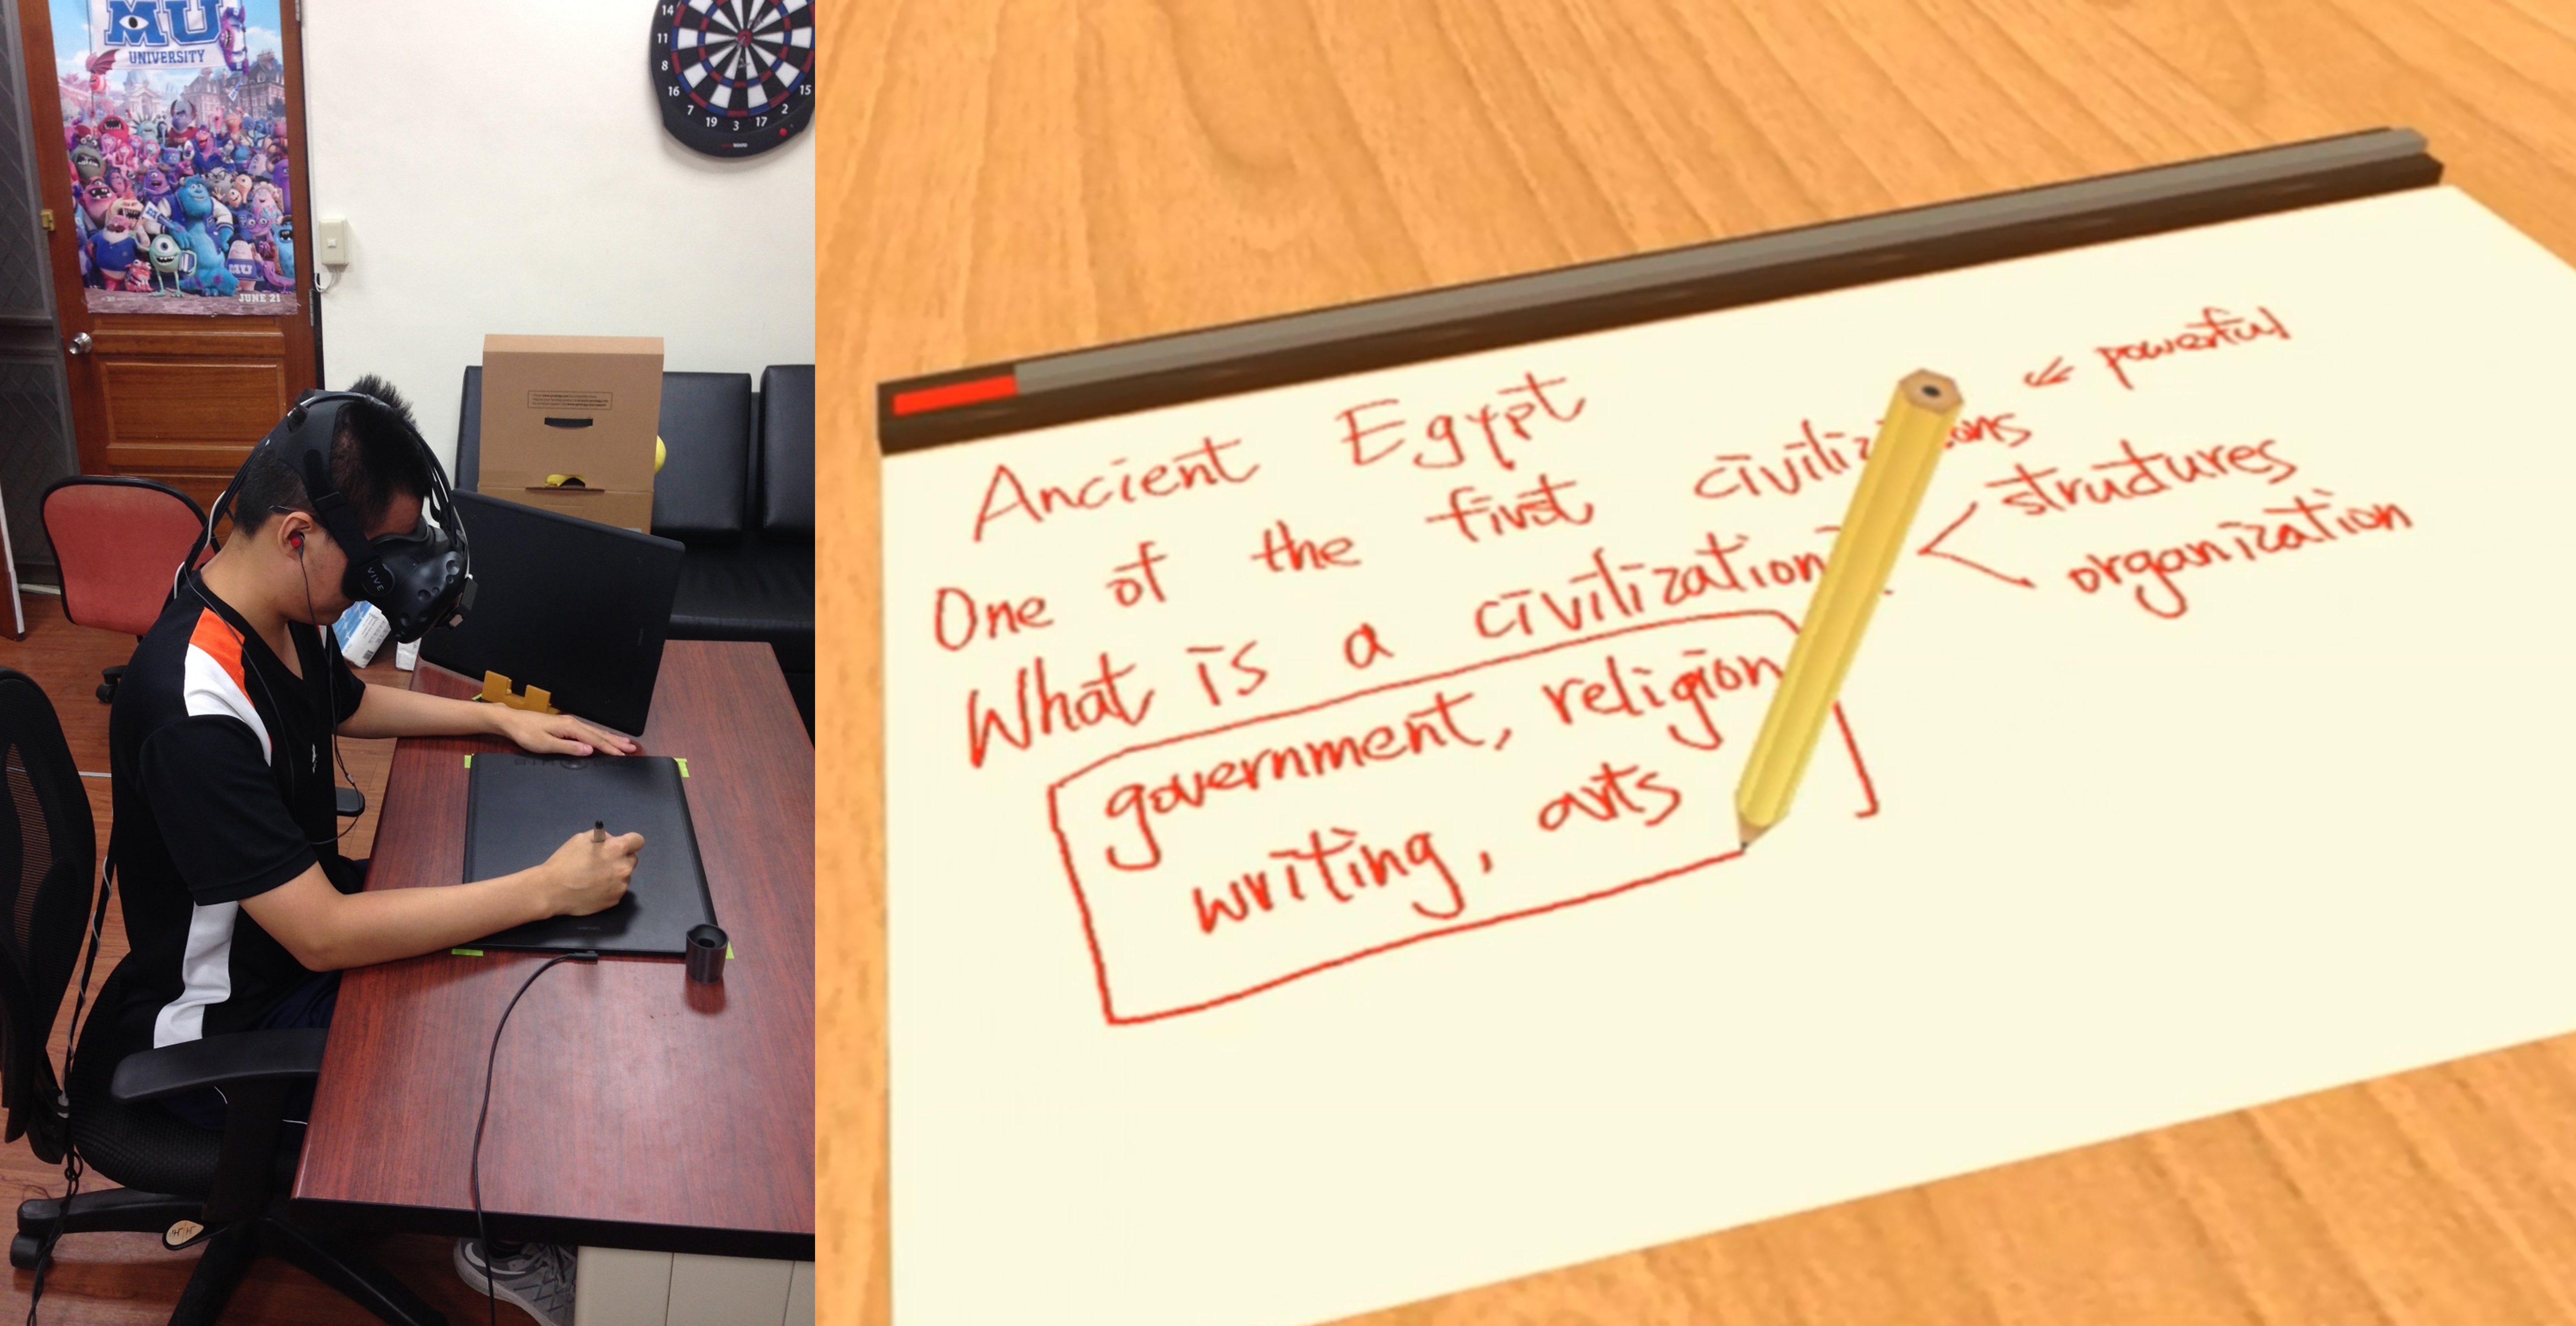 MU
UNIVERSITY
JUNE 21
14
11
8
16
7
19
3
17
2
15
VIVE
Ancient Egypt
← powerful
One of the first civilizations
structures
What is a civilization
organization
government, religion
writing, arts